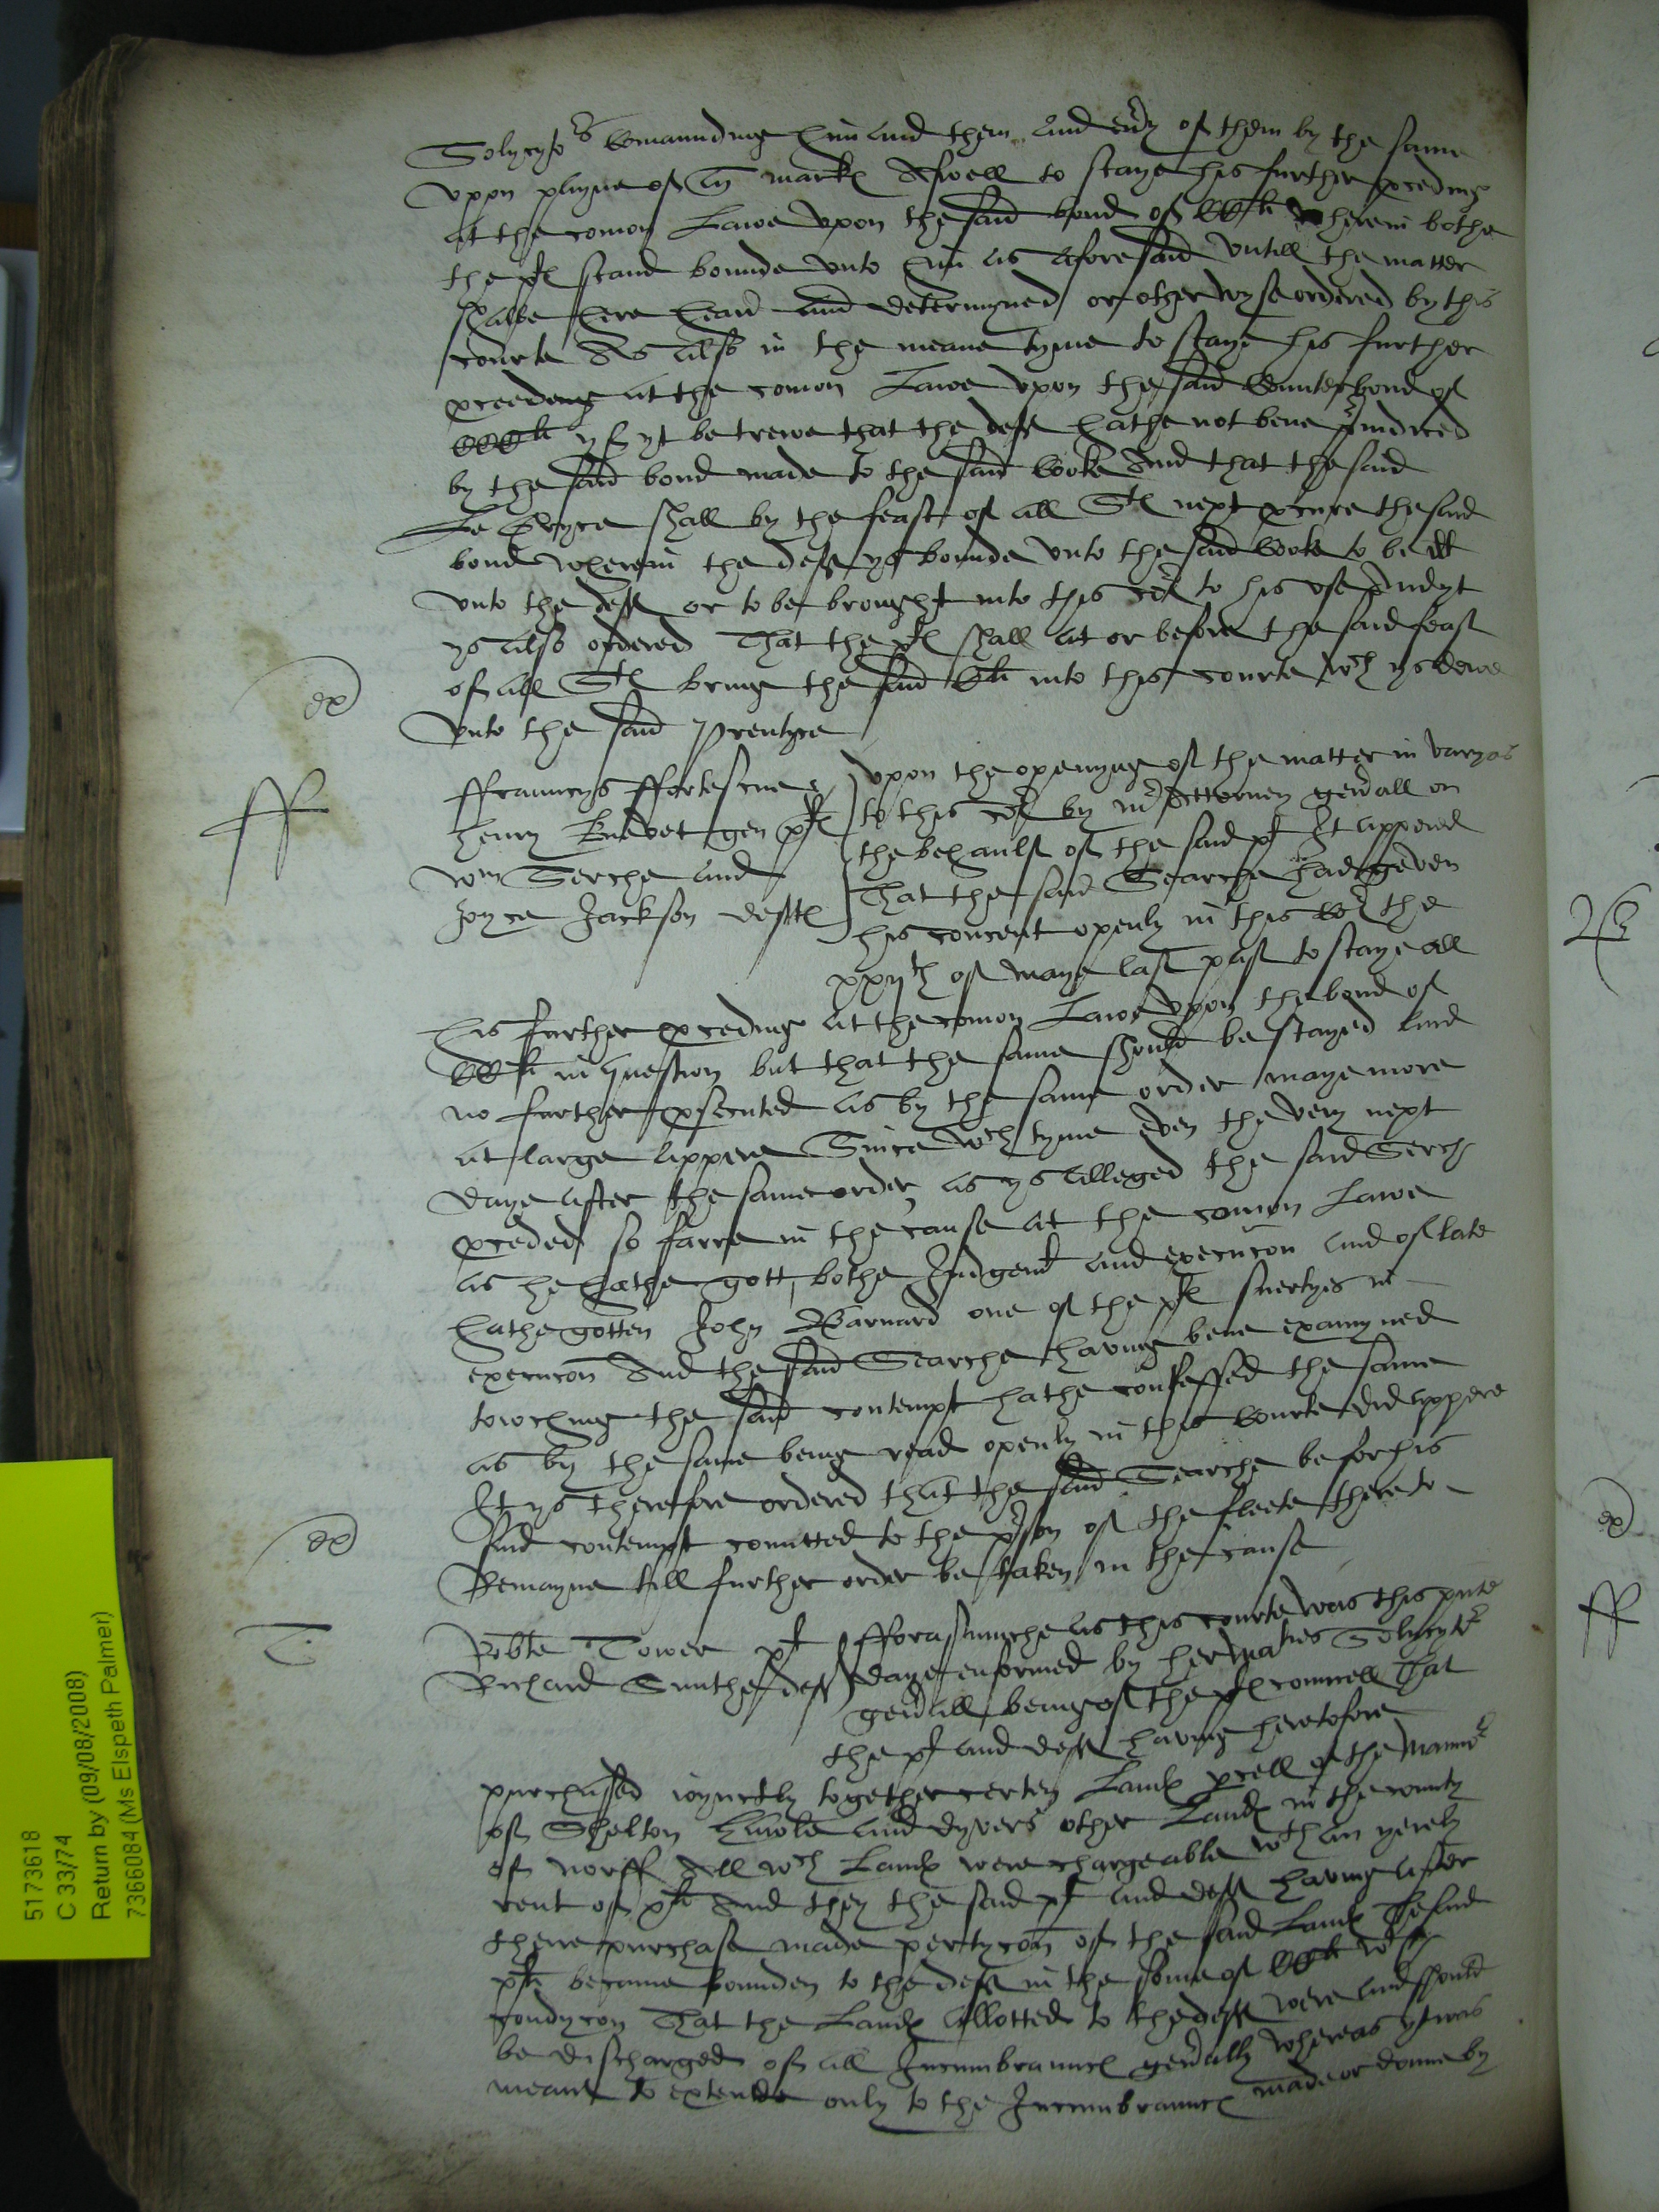 Solycyto[rs] Comaunding him and them and eu[er]y of them by the same
vpon payne of marks Aswell to staye his further p[ro]ceding
at the comon Lawe vpon the said bond of CC li wherein bothe
the pl[s] stand bounde vnto him as aforesaid vntill the matter
shalbe here heard and determyned or otherwyse ordered by this
courte As also in the meane tyme to staye his further
p[ro]ceeding at the comon Lawe vpon the said Counterbond of
yf yt be trewe that the def[t] hathe not bene p[re]iudiced
by the said bond made to the said Cooke And that the said
shall by the feast of all S[ts] next p[ro]cure the said
bond wherein the def[t] ys bounde vnto the said Cooke to be
vnto the def[t] or to be brought into this co[ur]t to his vse And yt
ys also ordered That the pl[s] shall at or before the said feast
of all S[ts] bring the said C li into this courte w[hi]ch ys dewe
vnto the said Prentyce
ex
ff
ffrauncys ffortescue &
henry Knevet gen pl[s]
w[m] Serche and
Joyce Jackson def[ts]
vpon the openyng of the matter in varyas
to this co[ur]t by m[r] Atturney gen[er]all on
the behaulf of the said pl[t] It appered
That the said Searche had geven
his concent openly in this Co[ur]t the
xxij[th] of maye last past to staye all
his further p[ro]ceding at the comon Lawe vpon the bond of
CC li in question but that the same should be stayed and
no further p[ro]secuted as by the same order maye more
at large appere Since w[hi]ch tyme even the very next
daye after the same order as ys alleged the said Serch
p[ro]ceded so farre in the cause at the comon Lawe
as he hathe gott bothe Judgem[t] and execucon and of late
hathe gotten John Barnard one of the pl[s] suertyes in
execucon And the said Searche having bene examyned
towching the said contempt hathe confessed the same
as by the same being read openly in this Courte did appere
It ys therefore ordered that the said Searche be for his
said contempt comitted to the p[ri]son of the fleete there to
Remayne till further order be taken in the cause
ex
T.
Rob[er]te Tower pl[t]
Richard Smithe def[t]
fforasmuche as this courte was this p[rese]nte
daye enformed by her Ma[ties] Solycyto[r]
gen[er]all being of the pl[s] councell That
the pl[t] and def[t] having heretofore
purchased ioynctly together certen Lands p[ar]cell of the Manno[r]
of Shelton and dyvers other Lands in the county
of norff All w[hi]ch Lands were chargeable w[i]th an yerely
rent of And they the said pl[t] and def[t] having after
there purchase made partycon of the said Lands The said
pl[t] became bounden to the def[t] in the some of CC li w[i]th
condycon That the Lands allotted to the def[t] were and should
be discharged of all Incumbraunces gen[er]ally whereas yt was
meant to extende only to the Incumbraunces made or donne by
ex
ff
5173618
C 33/74
Return by (09/08/2008)
7366084 (Ms Elspeth Palmer)